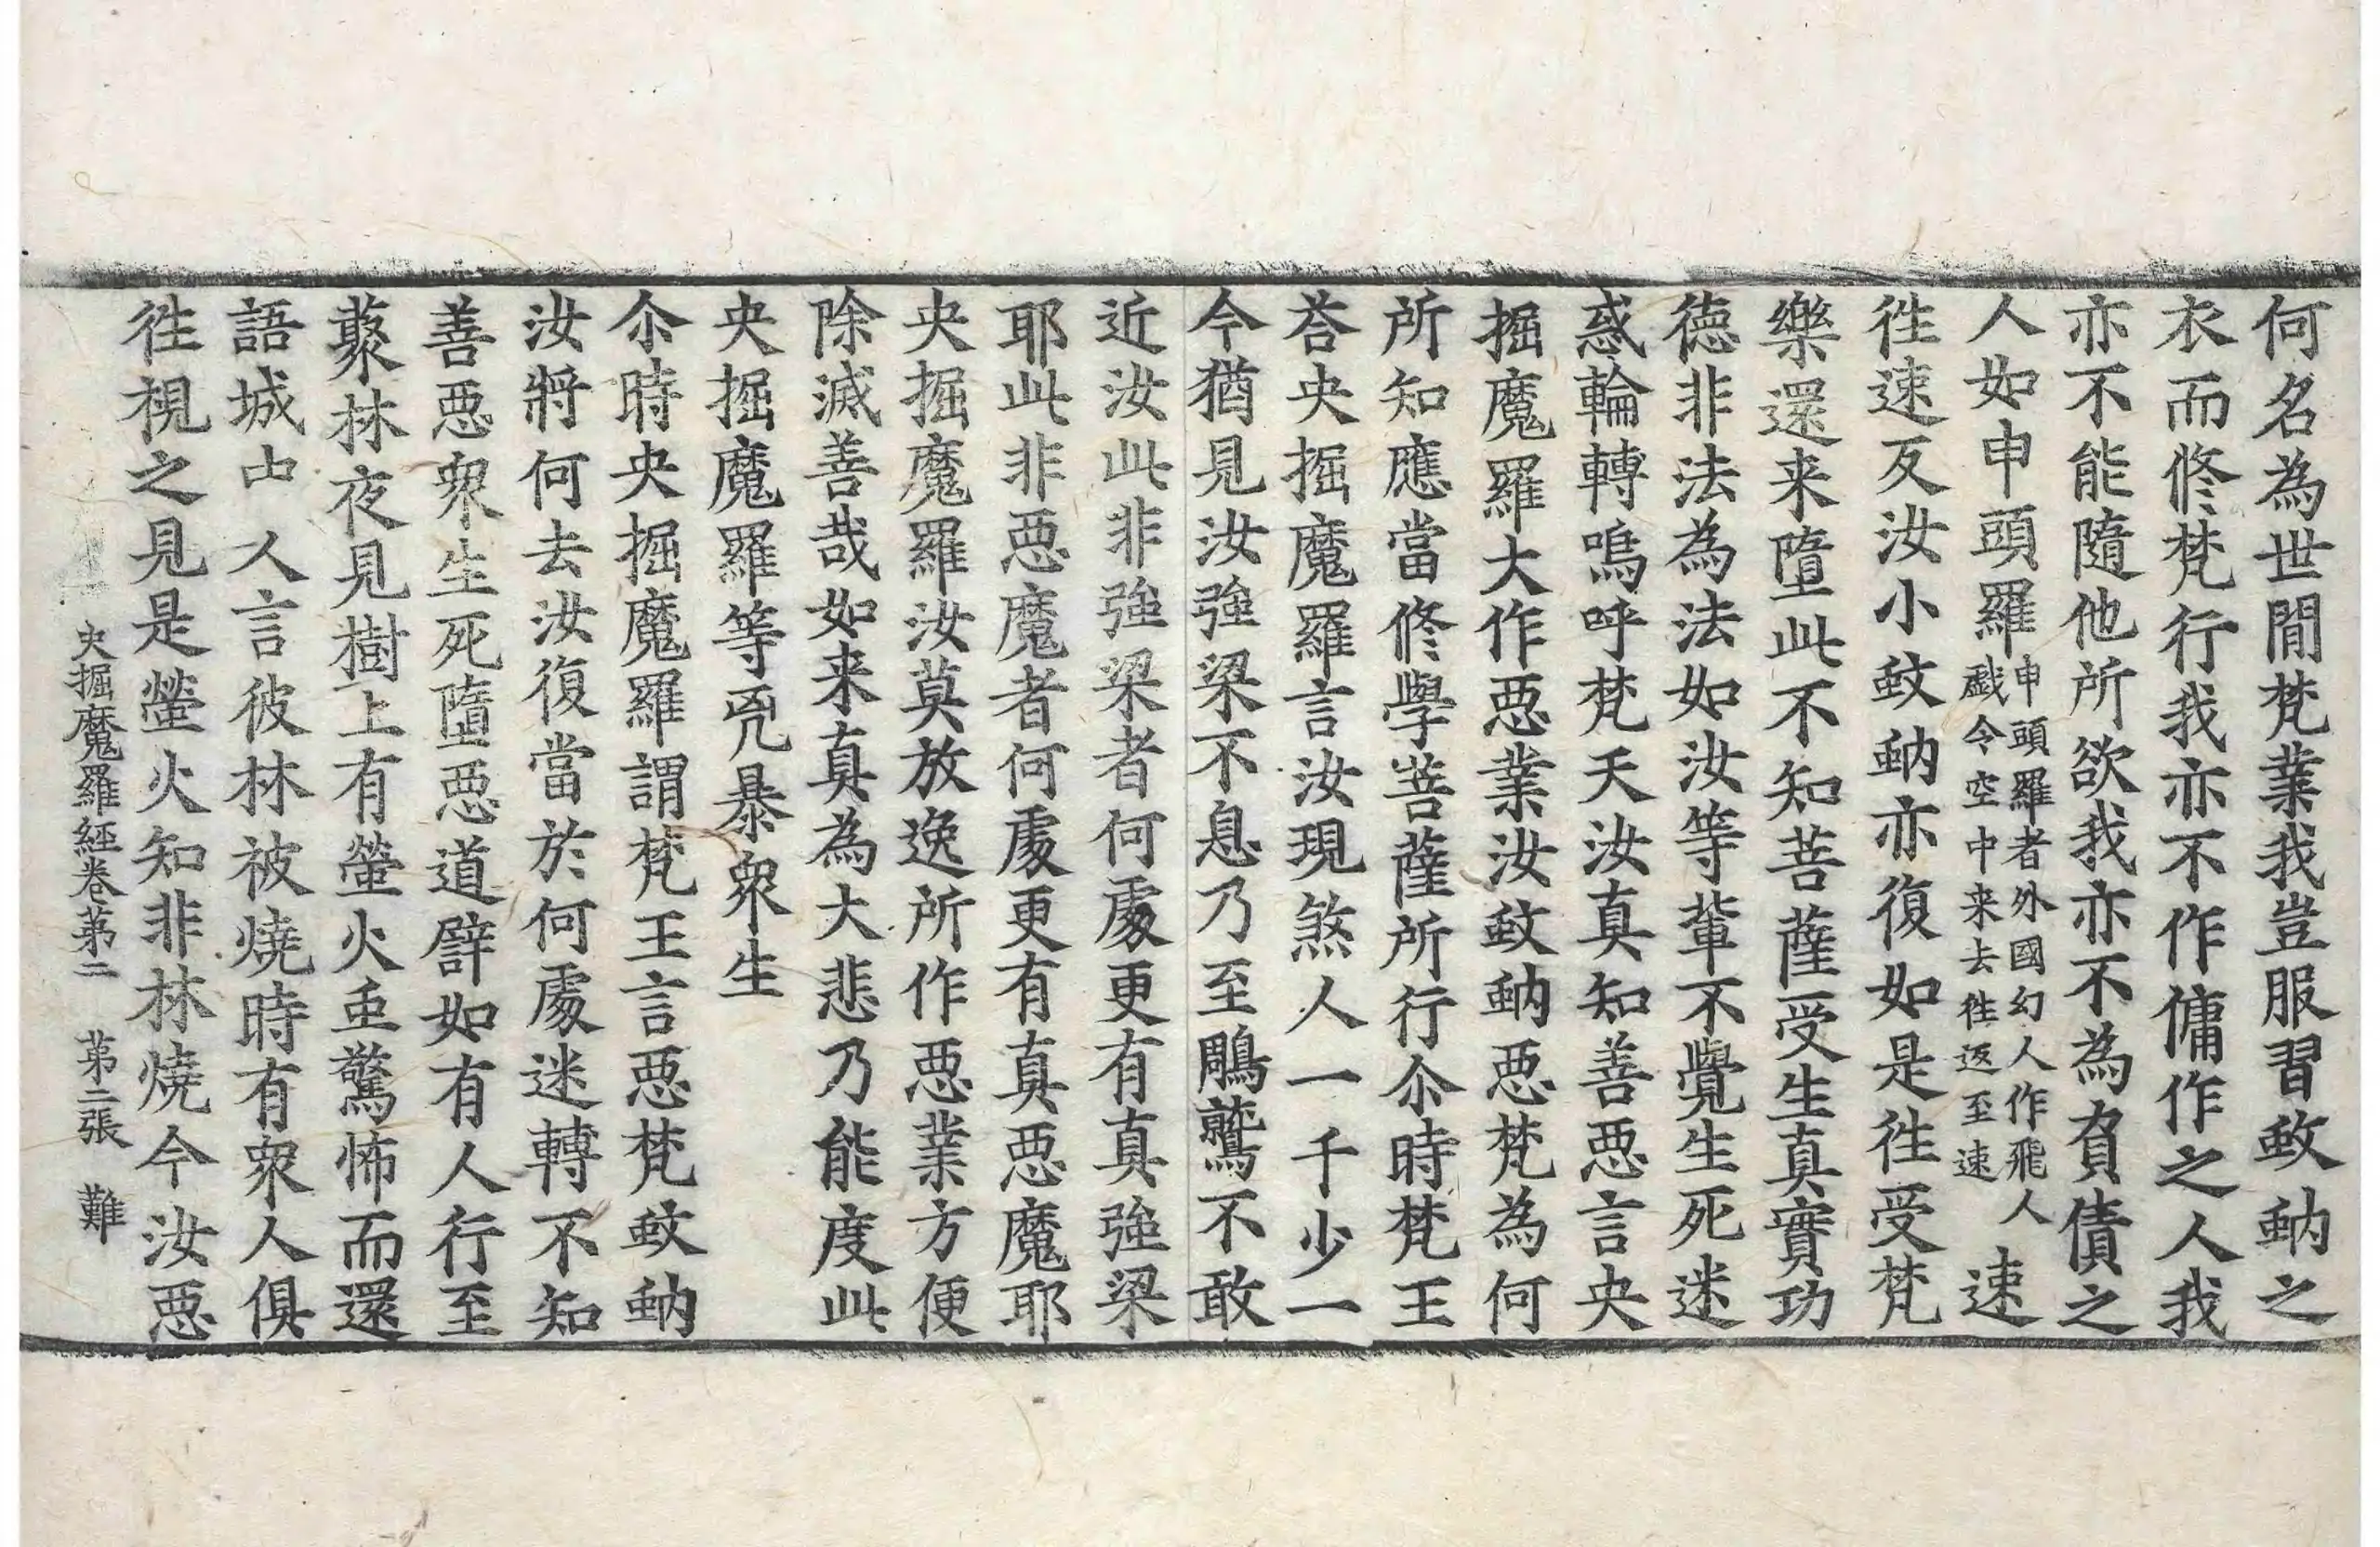 何名為世間梵業我豈服習蚊蚋之
衣而修梵行我亦不作傭作之人我
亦不能隨他所欲我亦不為負債之
人如申頭羅申頭羅者外國幻人作飛人戱令空中来去往返至速速
往速反汝小蚊蚋亦復如是往受梵
樂還来墮此不知菩薩受生真實功
德非法為法如汝等輩不覺生死迷
惑輪轉嗚呼梵天汝真知善惡言央
掘魔羅大作惡業汝蚊蚋惡梵為何
所知應當修學菩薩所行尒時梵王
荅央掘魔羅言汝現煞人一千少一
今猶見汝強梁不息乃至鵰鷲不敢
近汝此非強梁者何處更有真強梁
耶此非惡魔者何處更有真惡魔耶
央掘魔羅汝莫放逸所作惡業方便
除滅善哉如来真為大悲乃能度此
央掘魔羅等兇暴眾生
尒時央掘魔羅謂梵王言惡梵蚊蚋
汝將何去汝復當於何處迷轉不知
善惡眾生死墮惡道譬如有人行至
藂林夜見樹上有螢火虫驚怖而還
語城中人言彼林被燒時有眾人俱
往視之見是螢火知非林燒今汝惡
央掘魔羅經卷苐二 苐二張 難